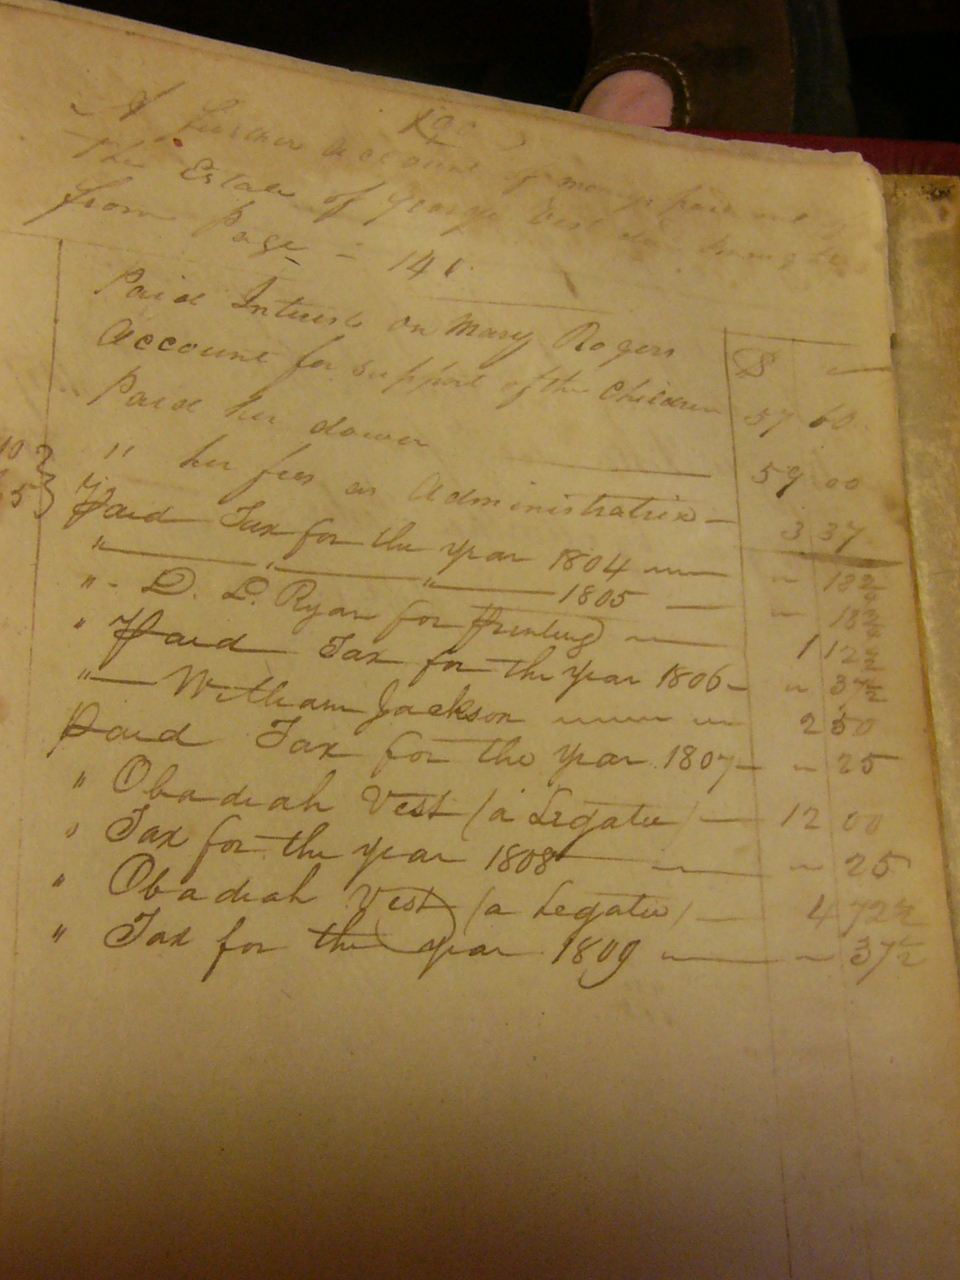 A further account of money paid out of
the Estate of George Vest
from Page = 141
Paid Interest on Mary Rogers
Account for support of the Children $ 57 60
Paid her dower 59 00
" her fees as Administratrix 3 37
Paid Tax for the year 1804 " 18 3/4
" " " 1805 " 18 3/4
" D. D. Ryan for printing 1 12 1/2
" Paid Tax for the year 1806 " 37 1/2
" William Jackson 2 50
Paid Tax for the year 1807 " 25
" Obadiah Vest (a Legatee) 12 00
" Tax for the year 1808 " 25
" Obadiah Vest (a Legatee) 4 72 1/2
" Tax for the year 1809 " 37 1/2
10
5